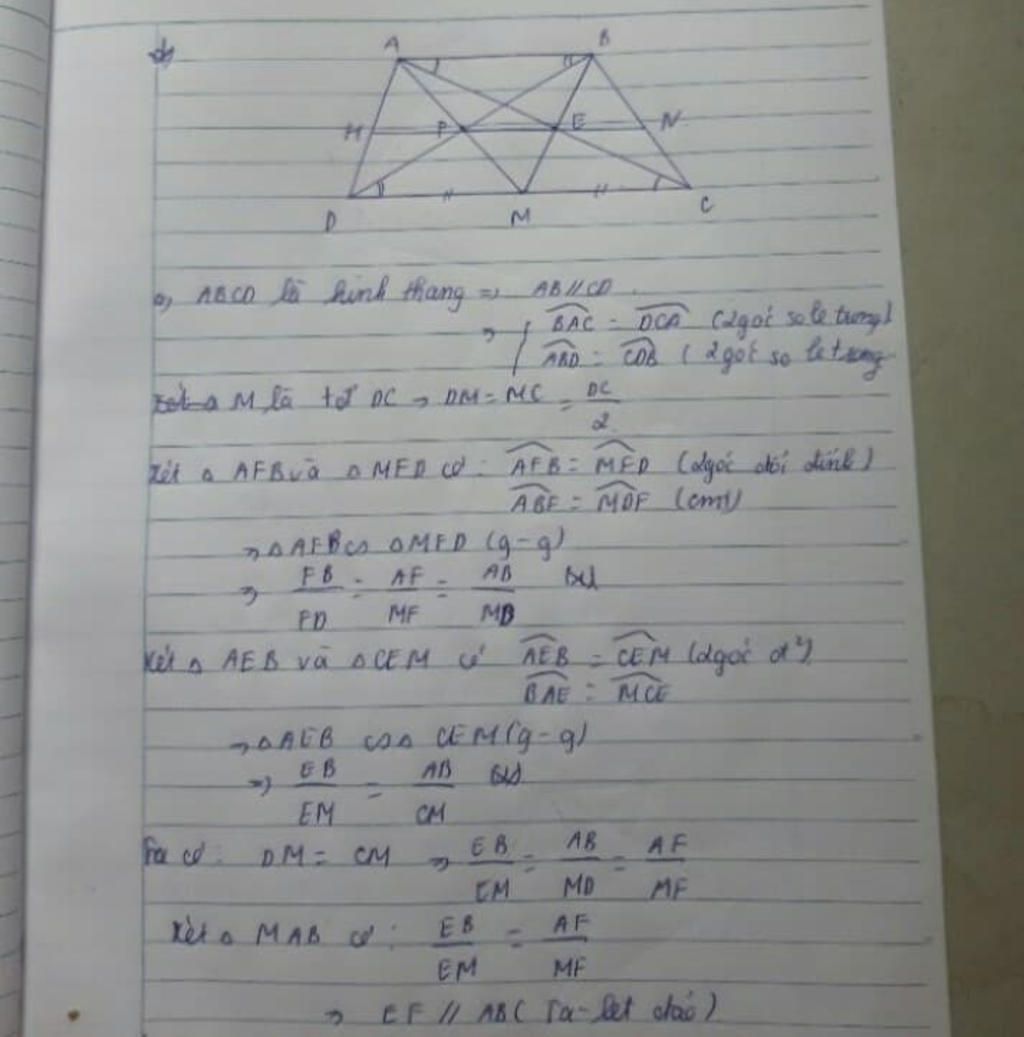 A B
H F E N
D M C
a, ABCD là hình thang => AB//CD.
=> { BAC = DCA (2 góc so le trong)
ABD = CDB (2 góc so le trong
M là tđ DC => DM = MC = DC/2
Xét △ AFB và △ MFD có: AFB = MFD (2 góc đối đỉnh)
ABF = MDF (cmt)
=> △ AFB ∽ △ MFD (g-g)
=> FB/FD = AF/MF = AB/MB
Xét △ AEB và △ CEM có AEB = CEM (2 góc đ²)
BAE = MCE
=> △ AEB ∽ △ CEM (g-g)
=> EB/EM = AB/CM
Ta có: DM = CM => EB/EM = AB/MD = AF/MF
Xét △ MAB có: EB/EM = AF/MF
=> EF // AB ( Ta-let đảo)